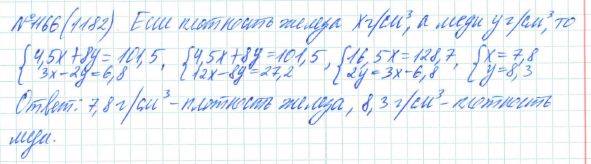 №1166 (1182) Если плотность железа x г/см³, а меди y г/см³, то
{4,5x+8y=101,5, {4,5x+8y=101,5, {16,5x=128,7, {x=7,8
3x-2y=6,8 12x-8y=27,2 2y=3x-6,8 y=8,3
Ответ: 7,8 г/см³ - плотность железа, 8,3 г/см³ - плотность
меди.